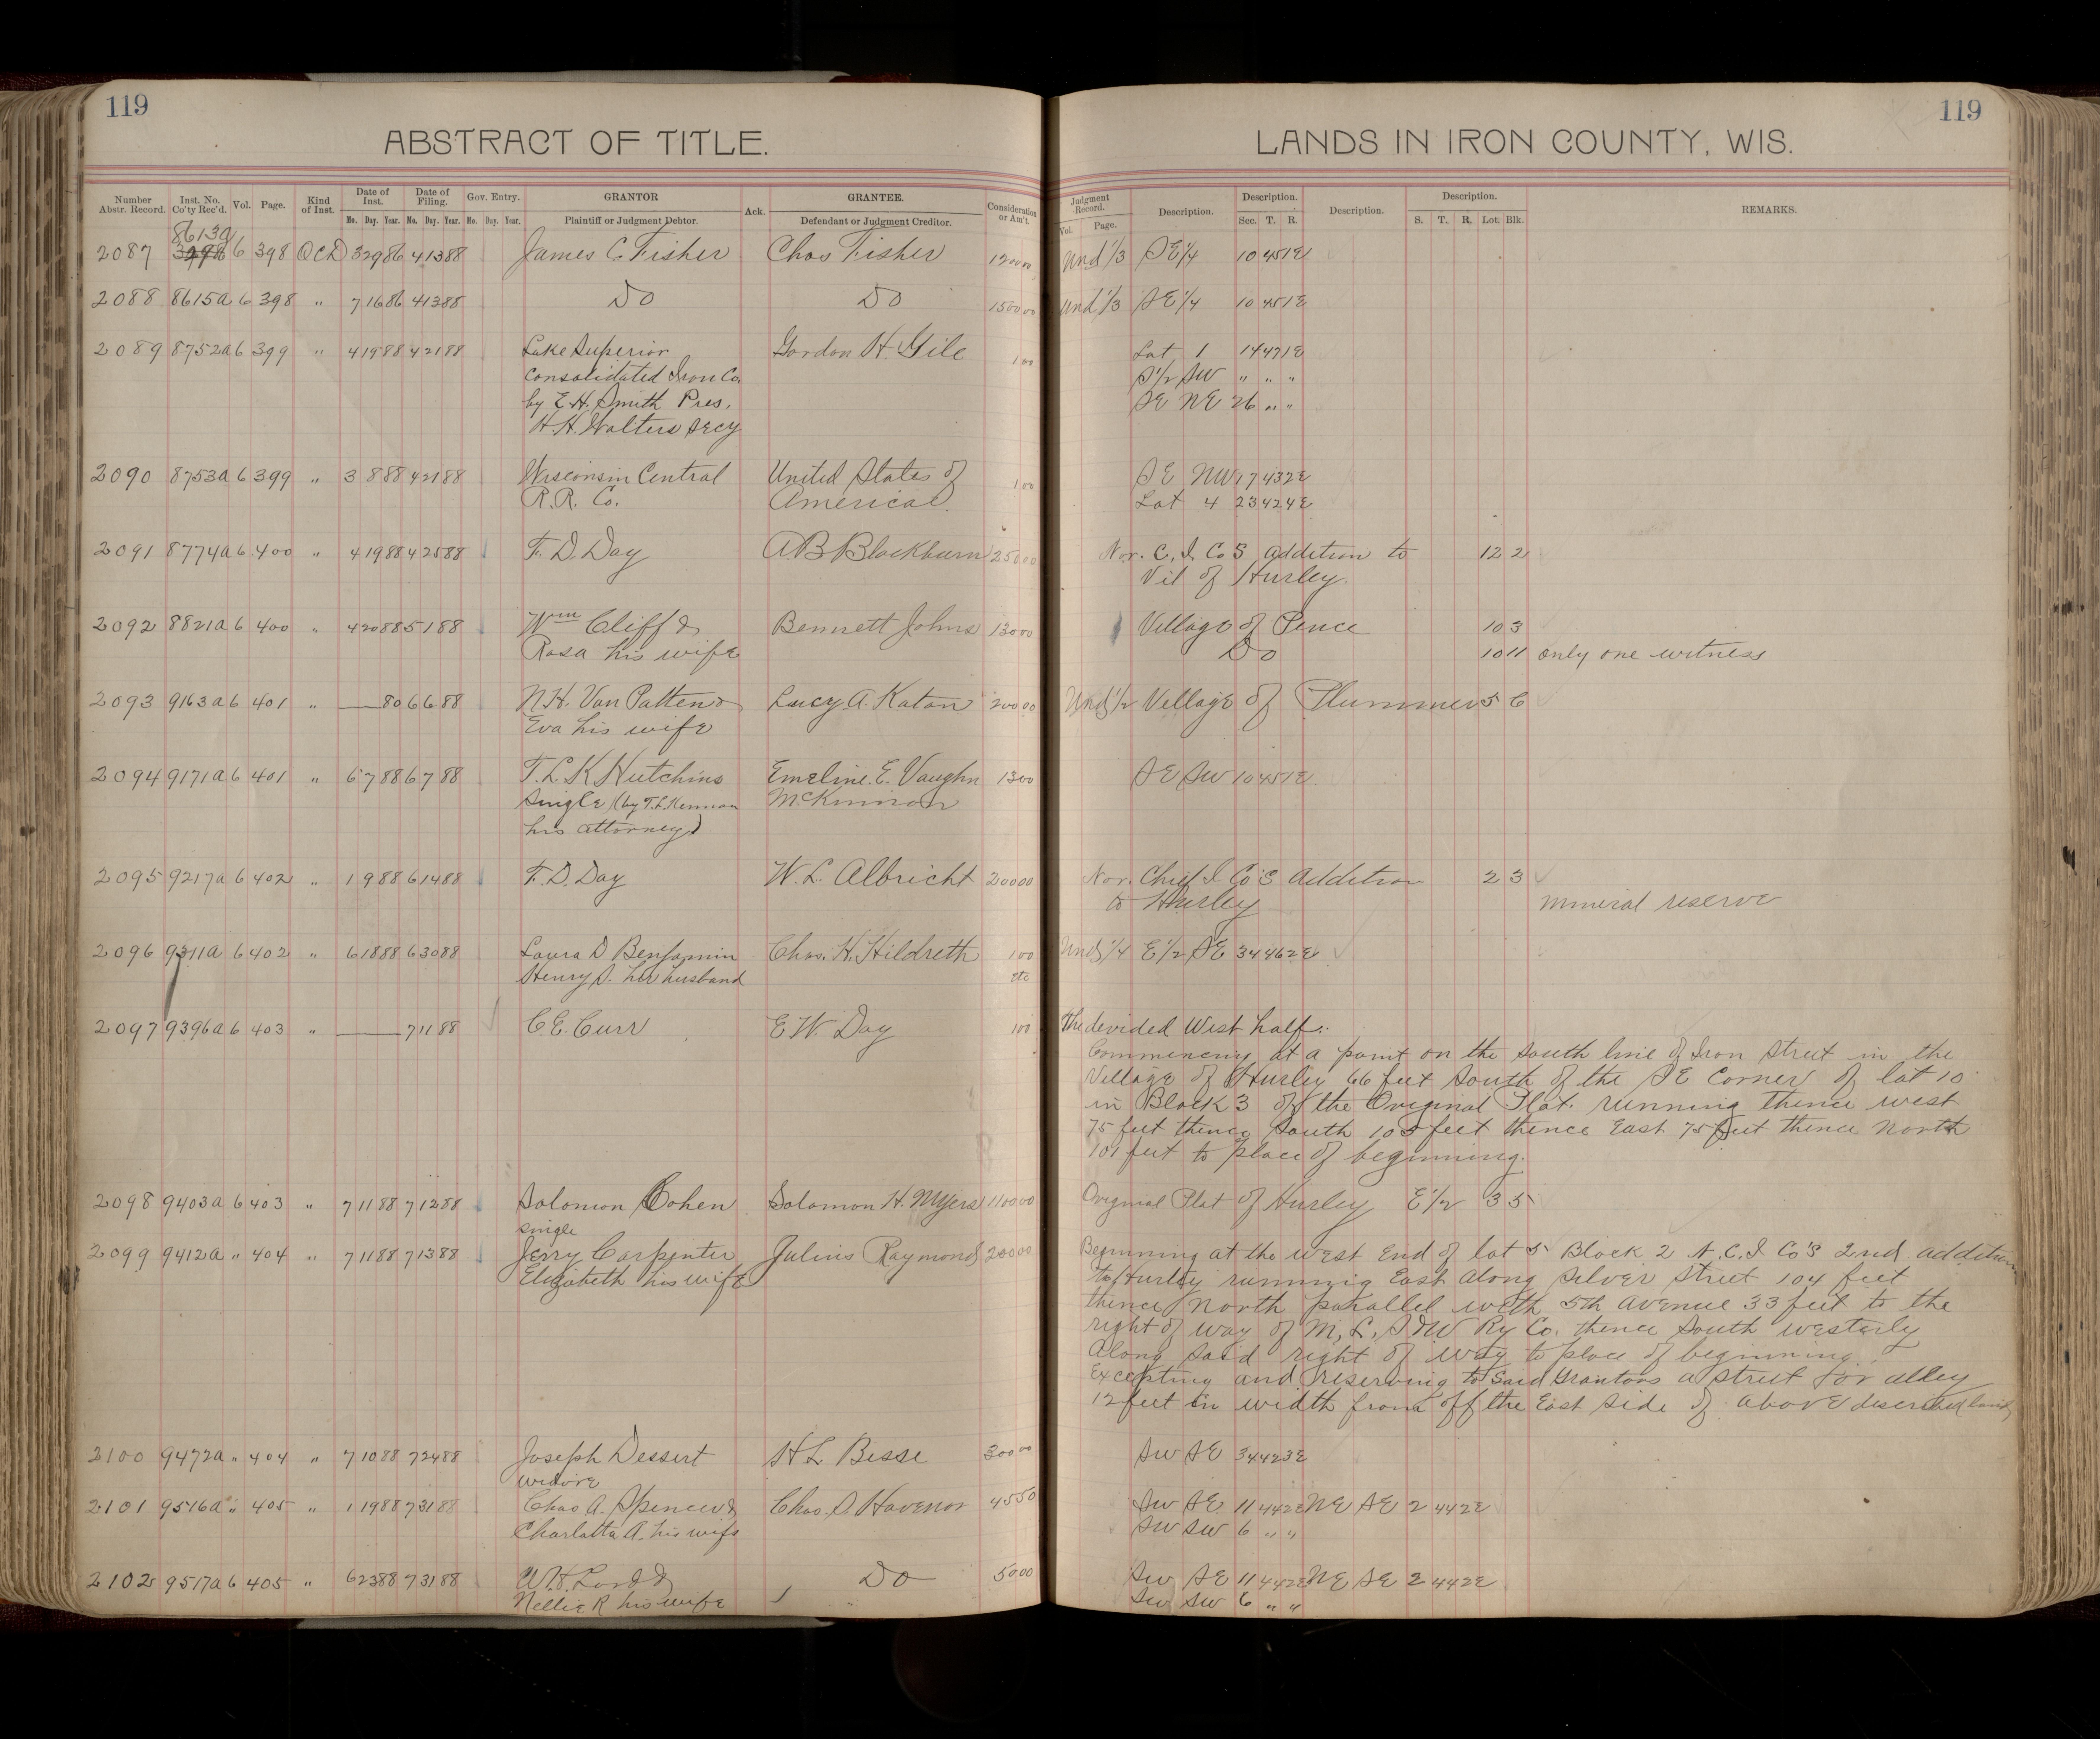 119
ABSTRACT OF TITLE.
Number Abstr. Record. Inst. No. Co'ty Rec'd. Vol. Page. Kind of Inst. Date of Inst. Mo. Day. Year. Date of Filing. Mo. Day. Year. Gov. Entry. Mo. Day. Year. GRANTOR Plaintiff or Judgment Debtor. Ack. GRANTEE. Defendant or Judgment Creditor. Consideration or Am't.
8613a
2087 6 398 QCD 3 29 86 4 13 88 James C Fisher Chas Fisher 120000
2088 8615a 6 398 " 7 16 86 4 13 88 Do Do 150000
2089 8752a 6 399 " 4 19 88 4 21 88 Lake Superior Gordon H. Gile 100
Consolidated Iron Co.
by E.H. Smith Pres.
H.H. Walters Secy
2090 8753a 6 399 " 3 8 88 4 21 88 Wisconsin Central United States of 100
R.R. Co. America
2091 8774a 6 400 " 4 19 88 4 25 88 F. D. Day A B Blackburn 25000
2092 8821a 6 400 " 4 20 88 5 1 88 Wm Cliff & Bennett Johns 13000
Rosa his wife
2093 9163a 6 401 " — 80 6 6 88 N.H. Van Patten & Lucy A. Katon 20000
Eva his wife
2094 9171a 6 401 " 6 7 88 6 7 88 T. L. K Hutchins Emeline. E. Vaughn 1300
Single (by T.L. Kennan McKinnon
his attorney)
2095 9217a 6 402 " 1 9 88 6 14 88 F. D. Day W. L. Albricht 20000
2096 9311a 6 402 " 6 18 88 6 30 88 Laura D Benjamin Chas. H. Hildreth 100
Henry S. her husband etc
2097 9396a 6 403 " — 7 11 88 C. E. Curr E W. Day 100
2098 9403a 6 403 " 7 11 88 7 12 88 Solomon Cohen Solomon H. Myers 110000
single
2099 9412a " 404 " 7 11 88 7 13 88 Jerry Carpenter Julius Raymond 20000
Elizabeth his wife
2100 9472a " 404 " 7 10 88 7 24 88 Joseph Dessert H L Besse 30000
2101 9516a " 405 " 1 19 88 7 31 88 Chas A. Spencer & Chas. S. Havenor 4550
Charlatta A. his wife
2102 9517a 6 405 " 6 23 88 7 31 88 W.H. Lord & Do 5000
Nellie R his wife
119
LANDS IN IRON COUNTY, WIS.
Judgment Record. Vol. Page. Description. Description. Sec. T. R. Description. Description. S. T. R. Lot Blk. REMARKS.
Und 1/3 SE 1/4 10 45 1E
Und 1/3 SE 1/4 10 45 1E
Lot 1 14 47 1E
S 1/2 SW " " "
SE NE 26 " "
SE NW 17 43 2E
Lot 4 23 42 4E
Nor. C. I. Co S addition to 12 2
Vil of Hurley.
Village of Pence 10 3
Do 10 11 only one witness
Und 1/2 Village of Plummer 5 6
SE SW 10 45 1E
Nor. Chief I Co'S Addition 2 3
to Hurley mineral reserve
Und 1/4 E 1/2 SE 34 46 2E
The devided West half.
Commencing at a point on the South line of Iron Street in the
Village of Hurley 66 feet South of the SE Corner of lot 10
in Block 3 of the Original Plat. running thence west
75 feet thence South 105 feet thence East 75 feet thence North
101 feet to place of beginning.
Original Plat of Hurley E 1/2 3 5
Beginning at the West End of lot 5 Block 2 N. C. I Co'S 2nd addition
to Hurley running East along Silver Street 104 feet
thence North parallel with 5th avenue 33 feet to the
right of way of M, L, S & W Ry Co. thence South westerly
Along said right of way to place of beginning
Excepting and reserving to Said Grantors a street for alley
12 feet in width from off the East Side of above described land
SW SE 34 42 3E
SW SE 11 44 2E NE SE 2 44 2E
SW SW 6 " "
SW SE 11 44 2E NE SE 2 44 2E
SW SW 6 " "